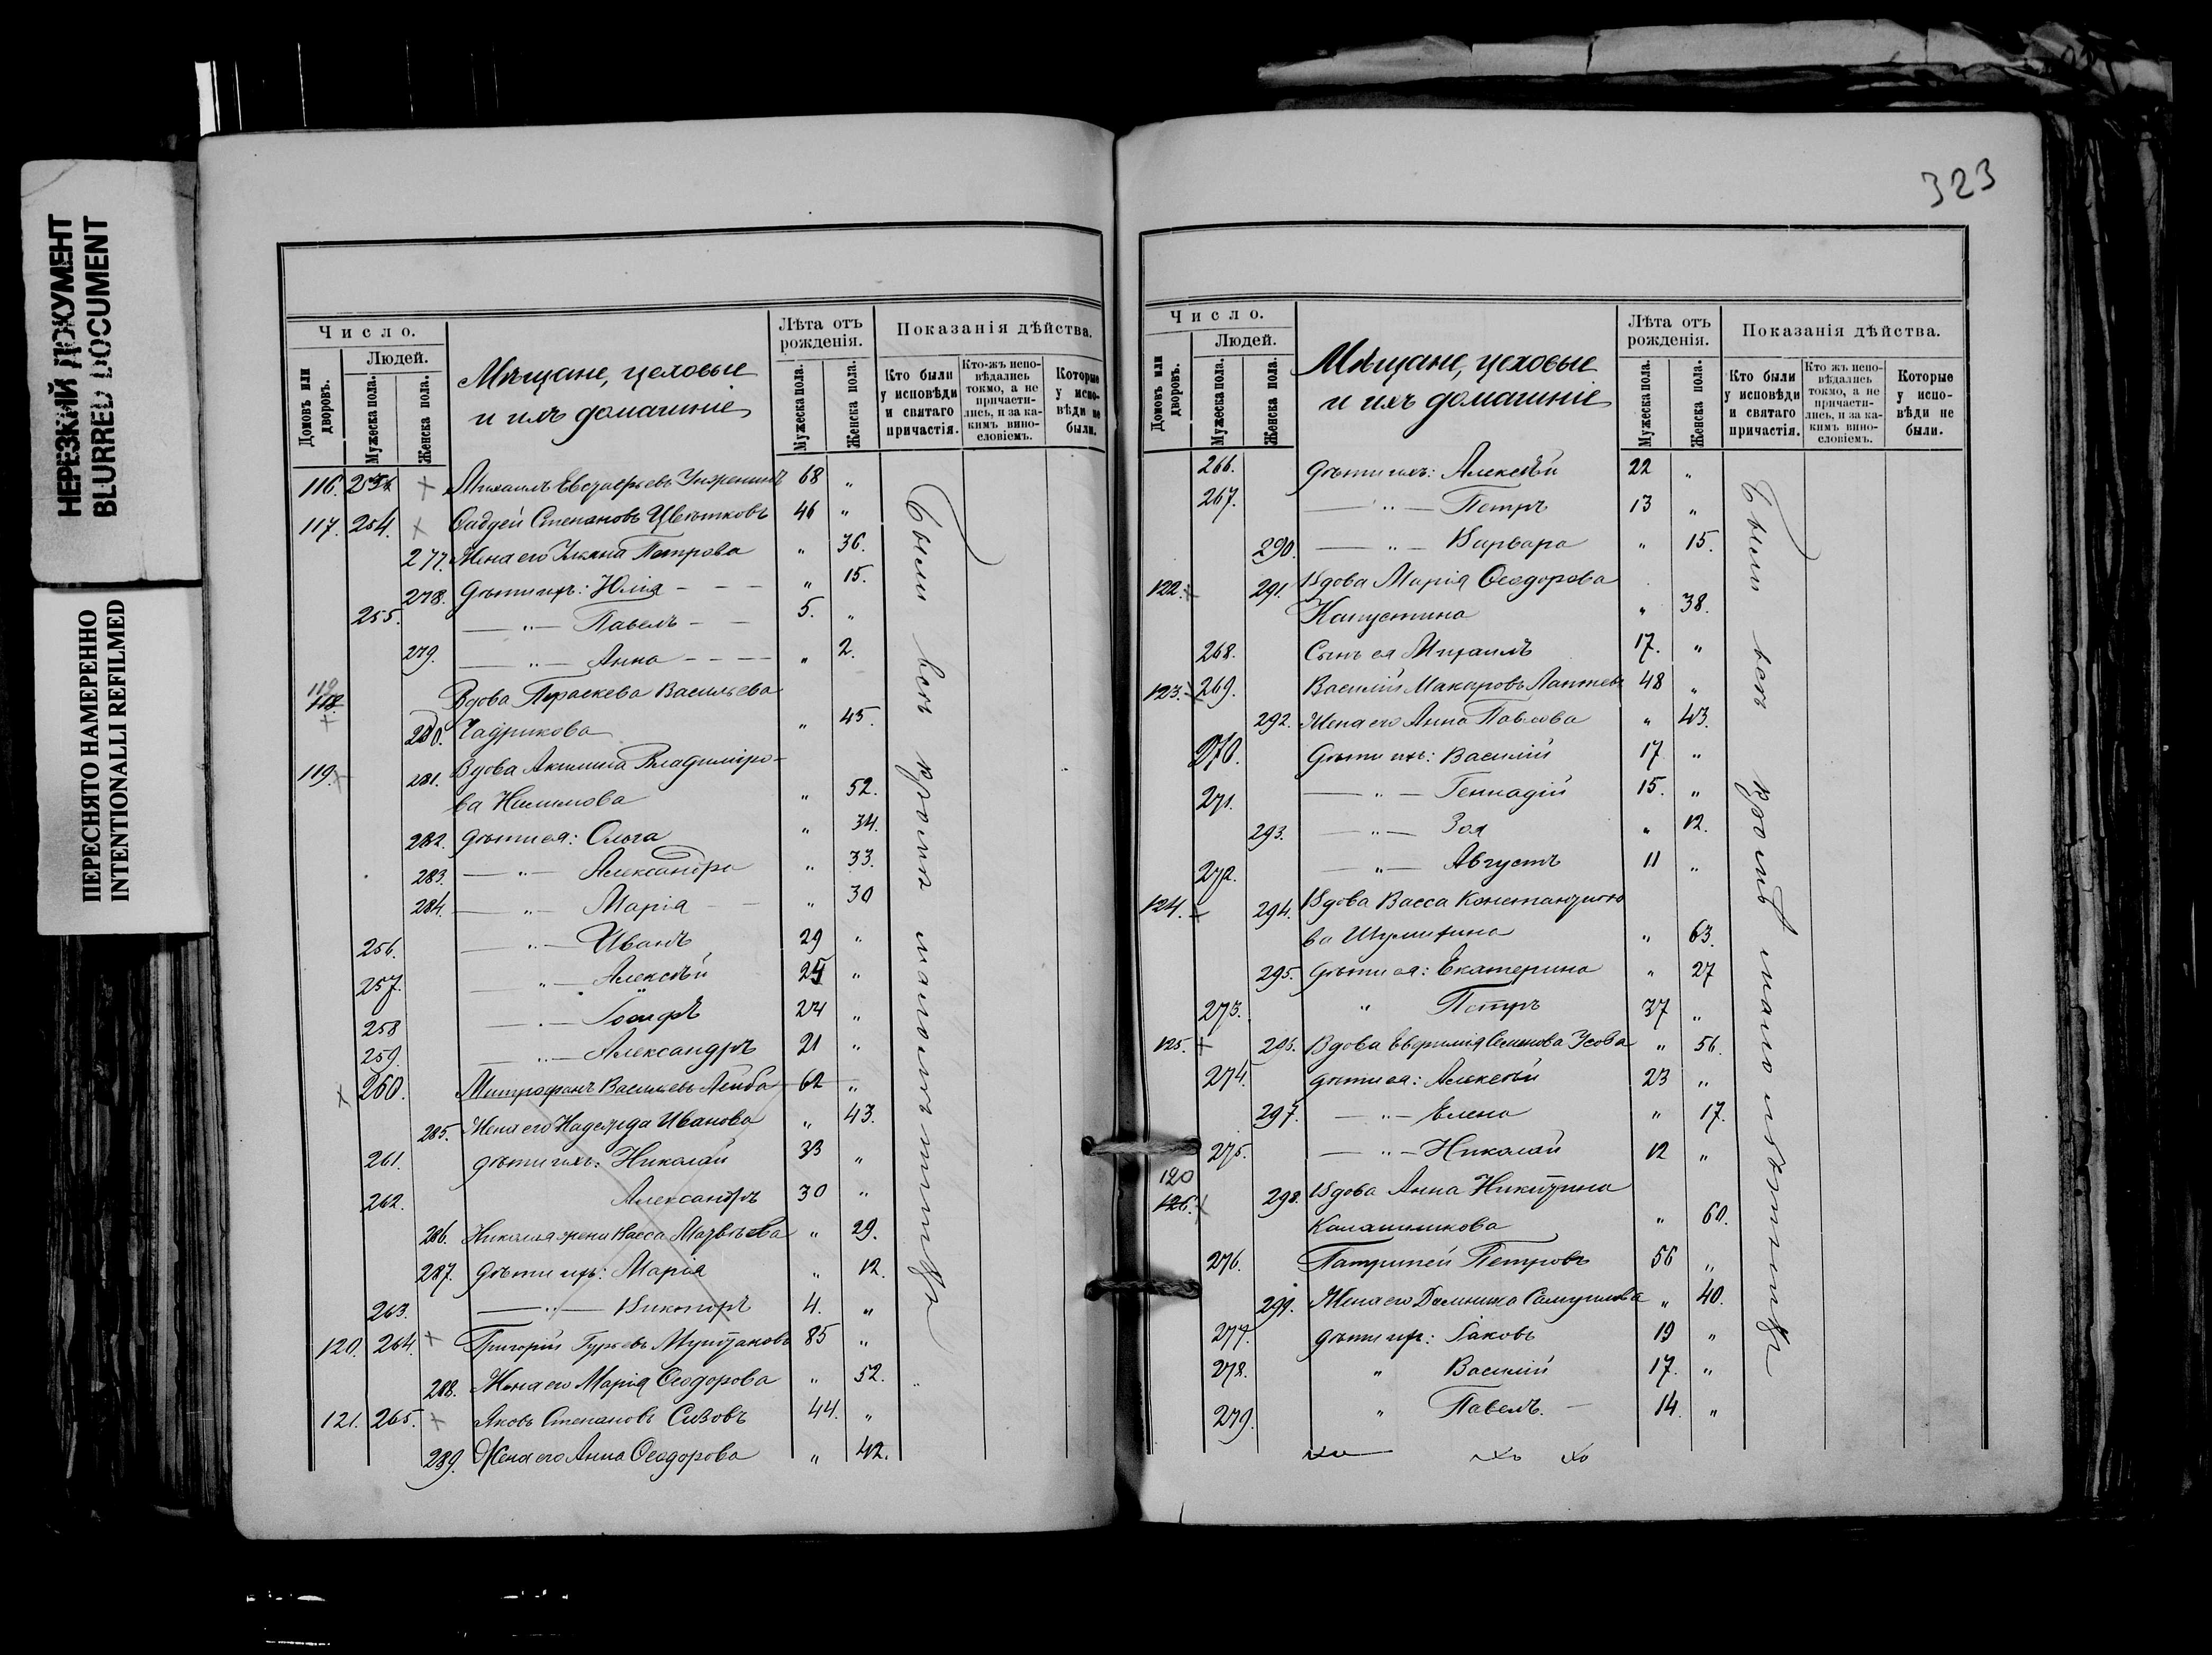 НЕРЕЗКИЙ ДОКУМЕНТ
BLURRED DOCUMENT
ПЕРЕСНЯТО НАМЕРЕННО
INTENTIONALLI REFILMED
Число.
Людей.
Домовъ или дворовъ.
Мужеска пола.
Женска пола.
Мѣщане, цеховые
и ихъ домашніе
Лѣта отъ рожденія.
Мужеска пола.
Женска пола.
Показанія дѣйства.
Кто были у исповѣди и святаго причастія.
Кто-жъ исповѣдались токмо, а не причастились, и за какимъ винословіемъ.
Которые у исповѣди не были.
116. Михаилъ 68 "
117. 254. Фаддей Степановъ Цвѣтковъ 46 "
277. Жена его Петрова " 36.
278. дѣти ихъ: Юлія - - - " 15.
255. — " — Павелъ - - 5. "
279. — " — Анна - - - - " 2.
119
118. Вдова Параскева Васильева
280. Чадрикова " 45.
119. 281. Вдова Акилина Владиміро-
ва " 52.
282. дѣти ея: Ольга " 34.
283. — " — Александра " 33.
284. — " — Марія - - " 30
256. — " — Иванъ 29 "
257. — " — Алексѣй 25 "
258 — " — Іосифъ 24 "
259. — " — Александръ 21 "
260. Митрофанъ Васильевъ 62 "
285. Жена его Надежда Иванова " 43.
261. дѣти ихъ: Николай 33 "
262. Александръ 30 "
286. Николая жена Васса Матвѣева " 29.
287. дѣти ихъ: Марія " 12.
263. — " — Викторъ 4. "
120. 264. Григорій Гурьевъ 85 "
288. Жена его Марія Ѳеодорова " 52.
121. 265. Яковъ Степановъ Сизовъ 44. "
289. Жена его Анна Ѳеодорова " 42.
Были всѣ кромѣ малолѣтнихъ
323
Число.
Людей.
Домовъ или дворовъ.
Мужеска пола.
Женска пола.
Мѣщане, цеховые
и ихъ домашніе
Лѣта отъ рожденія.
Мужеска пола.
Женска пола.
Показанія дѣйства.
Кто были у исповѣди и святаго причастія.
Кто жъ исповѣдались токмо, а не причастились, и за какимъ винословіемъ.
Которые у исповѣди не были.
266. дѣти ихъ: Алексѣй 22 "
267. — " — Петръ 13 "
290. — " — Варвара " 15.
122. 291. Вдова Марія Ѳеодорова
Капустина " 38.
268. Сынъ ея Михаилъ 17. "
123. 269. Василій Макаровъ Лаптевъ 48 "
292. Жена его Анна Павлова " 43.
270. дѣти ихъ: Василій 17 "
271. — " — Геннадій 15. "
293. — " — Зоя " 12.
272. — " — Августъ 11 "
124. 294. Вдова Васса Константино
ва " 63.
295. дѣти ея: Екатерина " 27
273. " Петръ 37 "
125. 296. Вдова Евфимія Семенова Усова " 56.
274. дѣти ея: Алексѣй 23 "
297. — " — Елена " 17.
275. — " — Николай 12 "
120
126. 298. Вдова Анна Никитина
Калашникова " 60.
276. Петровъ 56 "
299. Жена его Домника Самуилова " 40.
277. дѣти ихъ: Іаковъ 19 "
278. " Василій 17. "
279. " Павелъ. - 14. "
Были всѣ кромѣ малолѣтнихъ